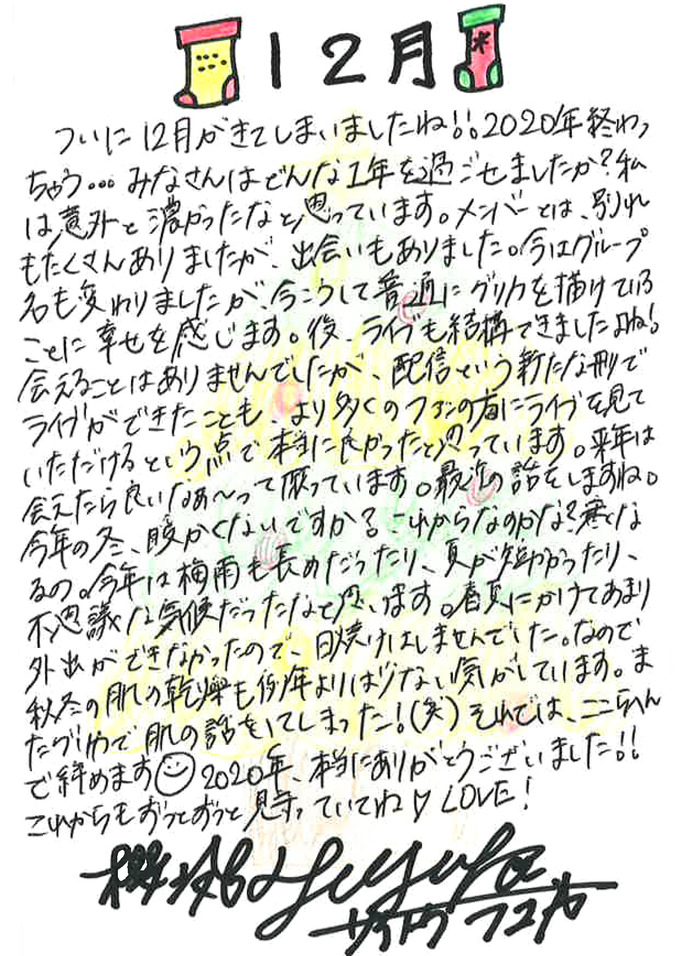 12月
ついに12月がきてしまいましたね!!2020年終わっ
ちゃう...みなさんはどんな1年を過ごせましたか?私
は、意外と濃かったなと思っています。メンバーとは、別れ
もたくさんありましたが、出会いもありました。今はグループ
名も変わりましたが、今こうして普通にグリカを描けている
ことに幸せを感じます。後、ライブも結構できましたよね!
会えることはありませんでしたが、配信という新たな形で
ライブができたことも、より多くのファンの方にライブを見て
いただけるという点で本当に良かったと思っています。来年は
会えたら良いなぁ〜って願っています。最近の話をしますね。
今年の冬、暖かくないですか?これからなのかな?寒くな
るの。今年は梅雨も長めだったり、夏が短かかったり、
不思議な気候だったなと思います。春夏にかけてあまり
外出ができなかったので、日焼けはしませんでした。なので
秋冬の肌の乾燥も例年よりは少ない気がしています。ま
たグリカで肌の話をしてしまった!(笑)それでは、ここらへん
で締めます☺2020年、本当にありがとうございました!!
これからもずっとずっと見守っていてね♡LOVE!
櫻坂46
サイトウ フユカ